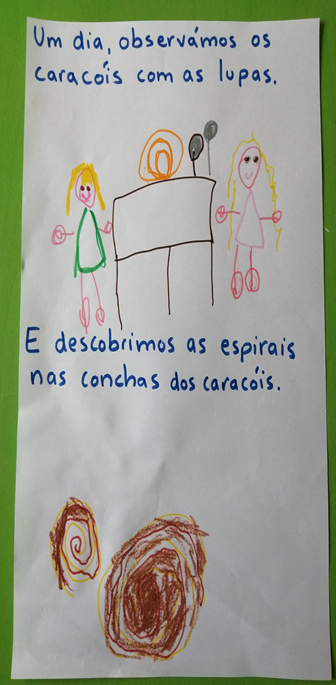 Um dia, observámos os
caracóis com as lupas.
E descobrimos as espirais
nas conchas dos caracóis.